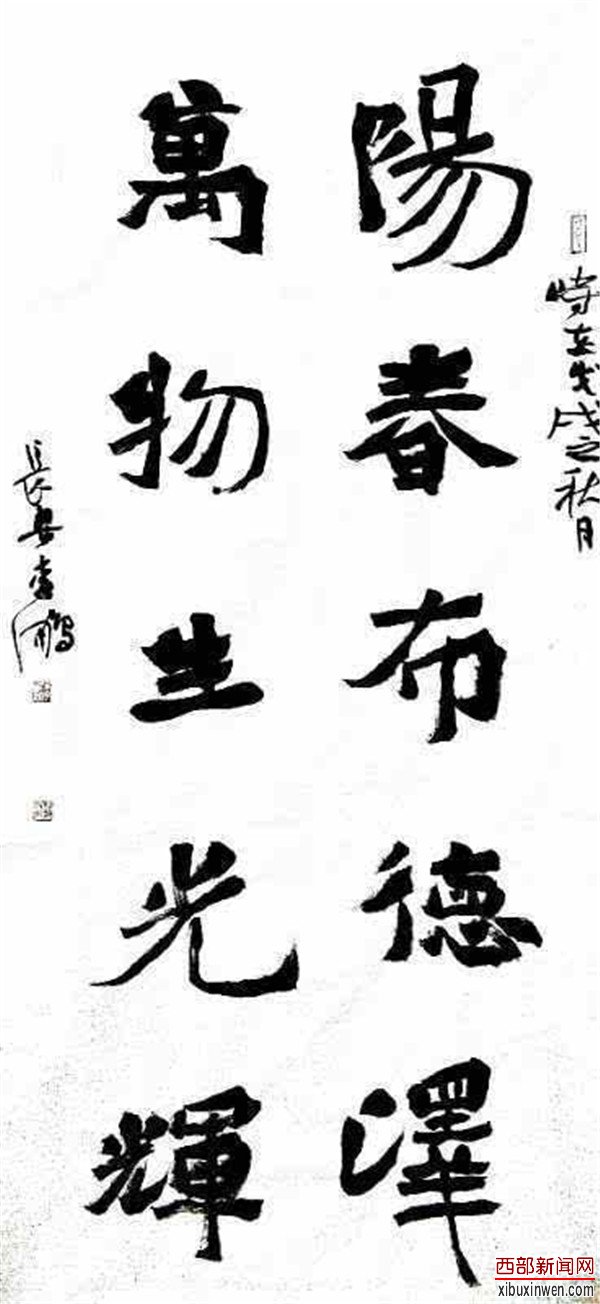 時在戊戌之秋月
陽春布德澤
萬物生光輝
長安李鵬
西部新闻网
xibuxinwen.com